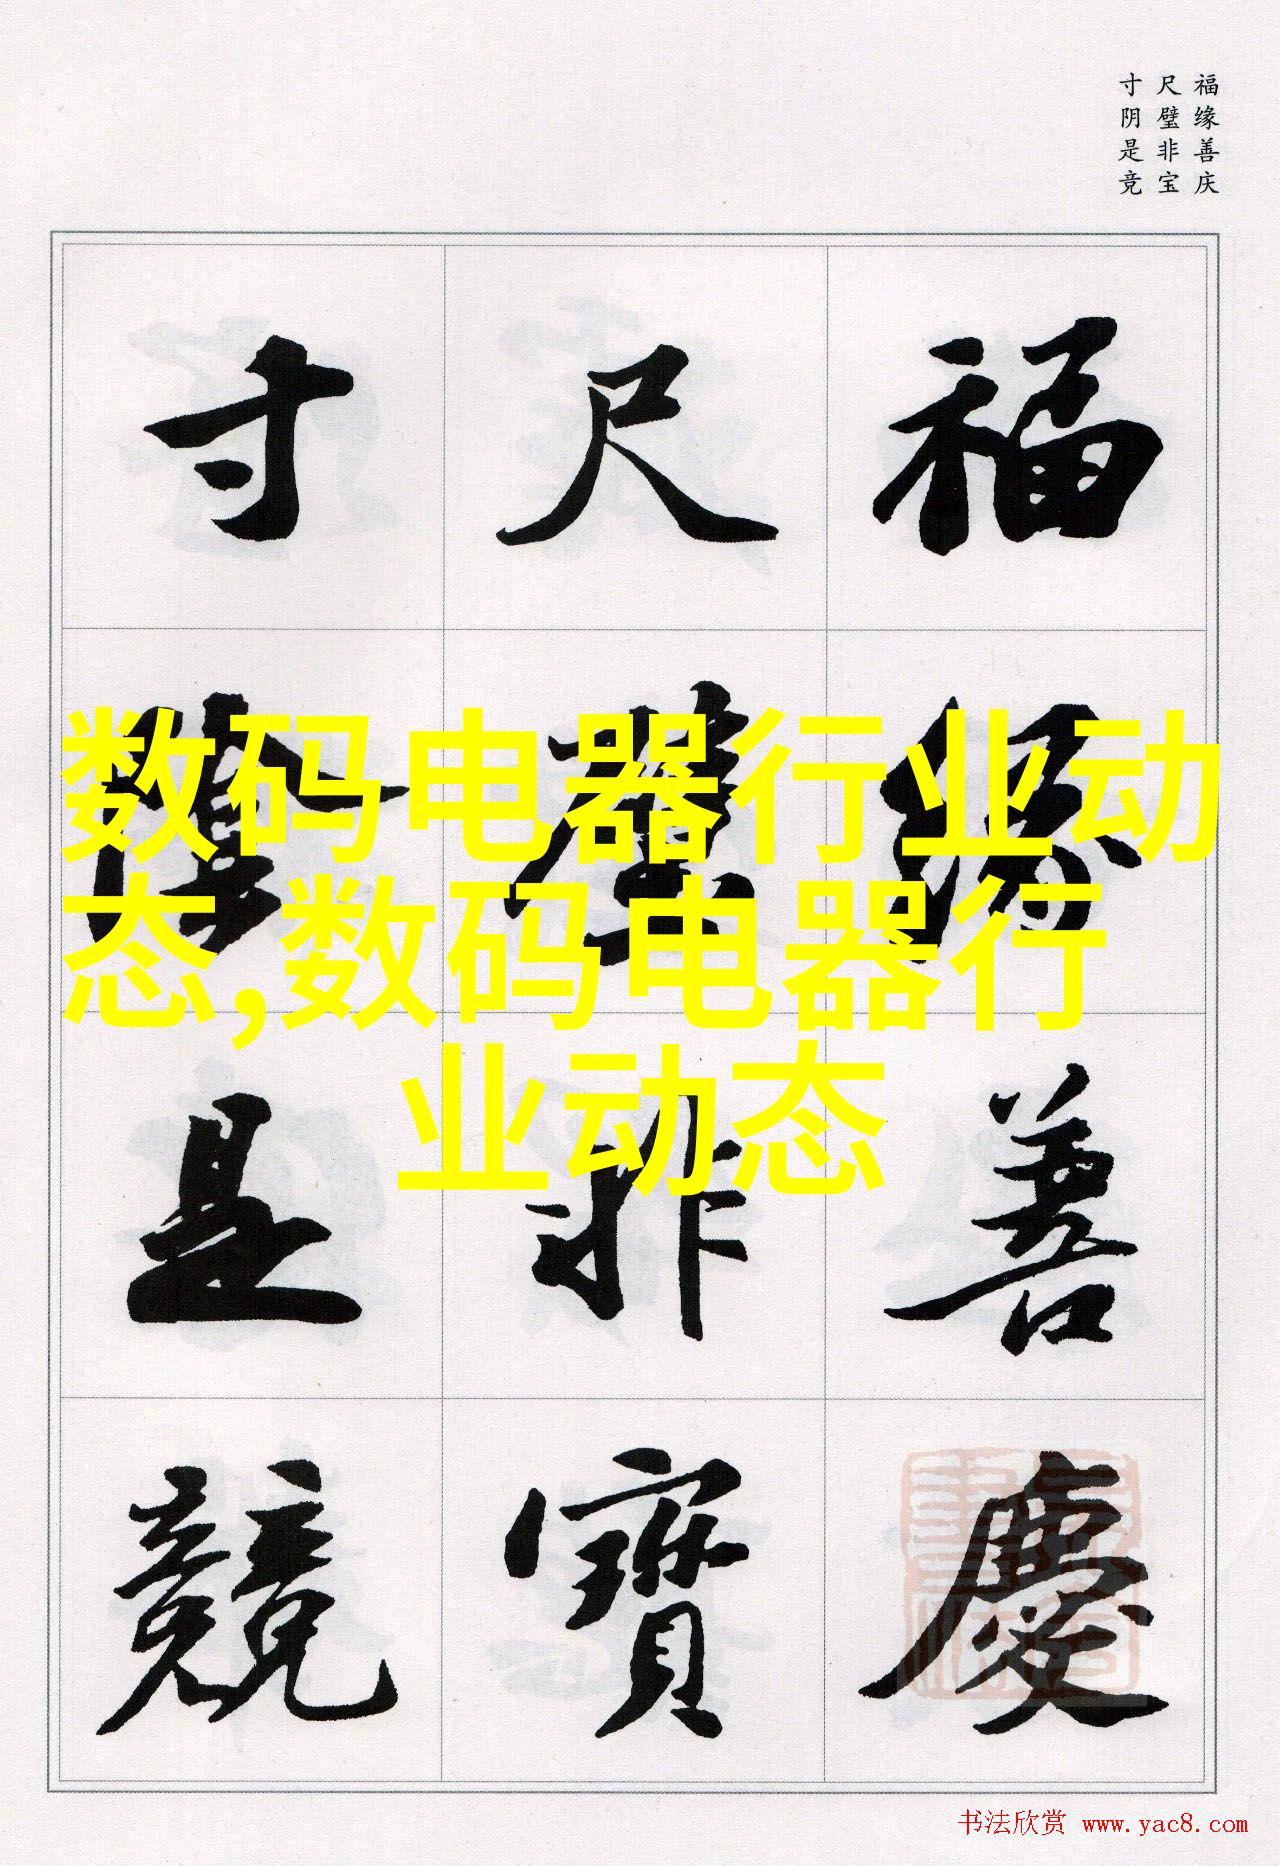 福缘善庆
尺璧非宝
寸阴是竞
福緣善慶
尺璧非寶
寸陰是競
数码电器行业动
态,数码电器行
业动态
书法欣赏 www.yac8.com